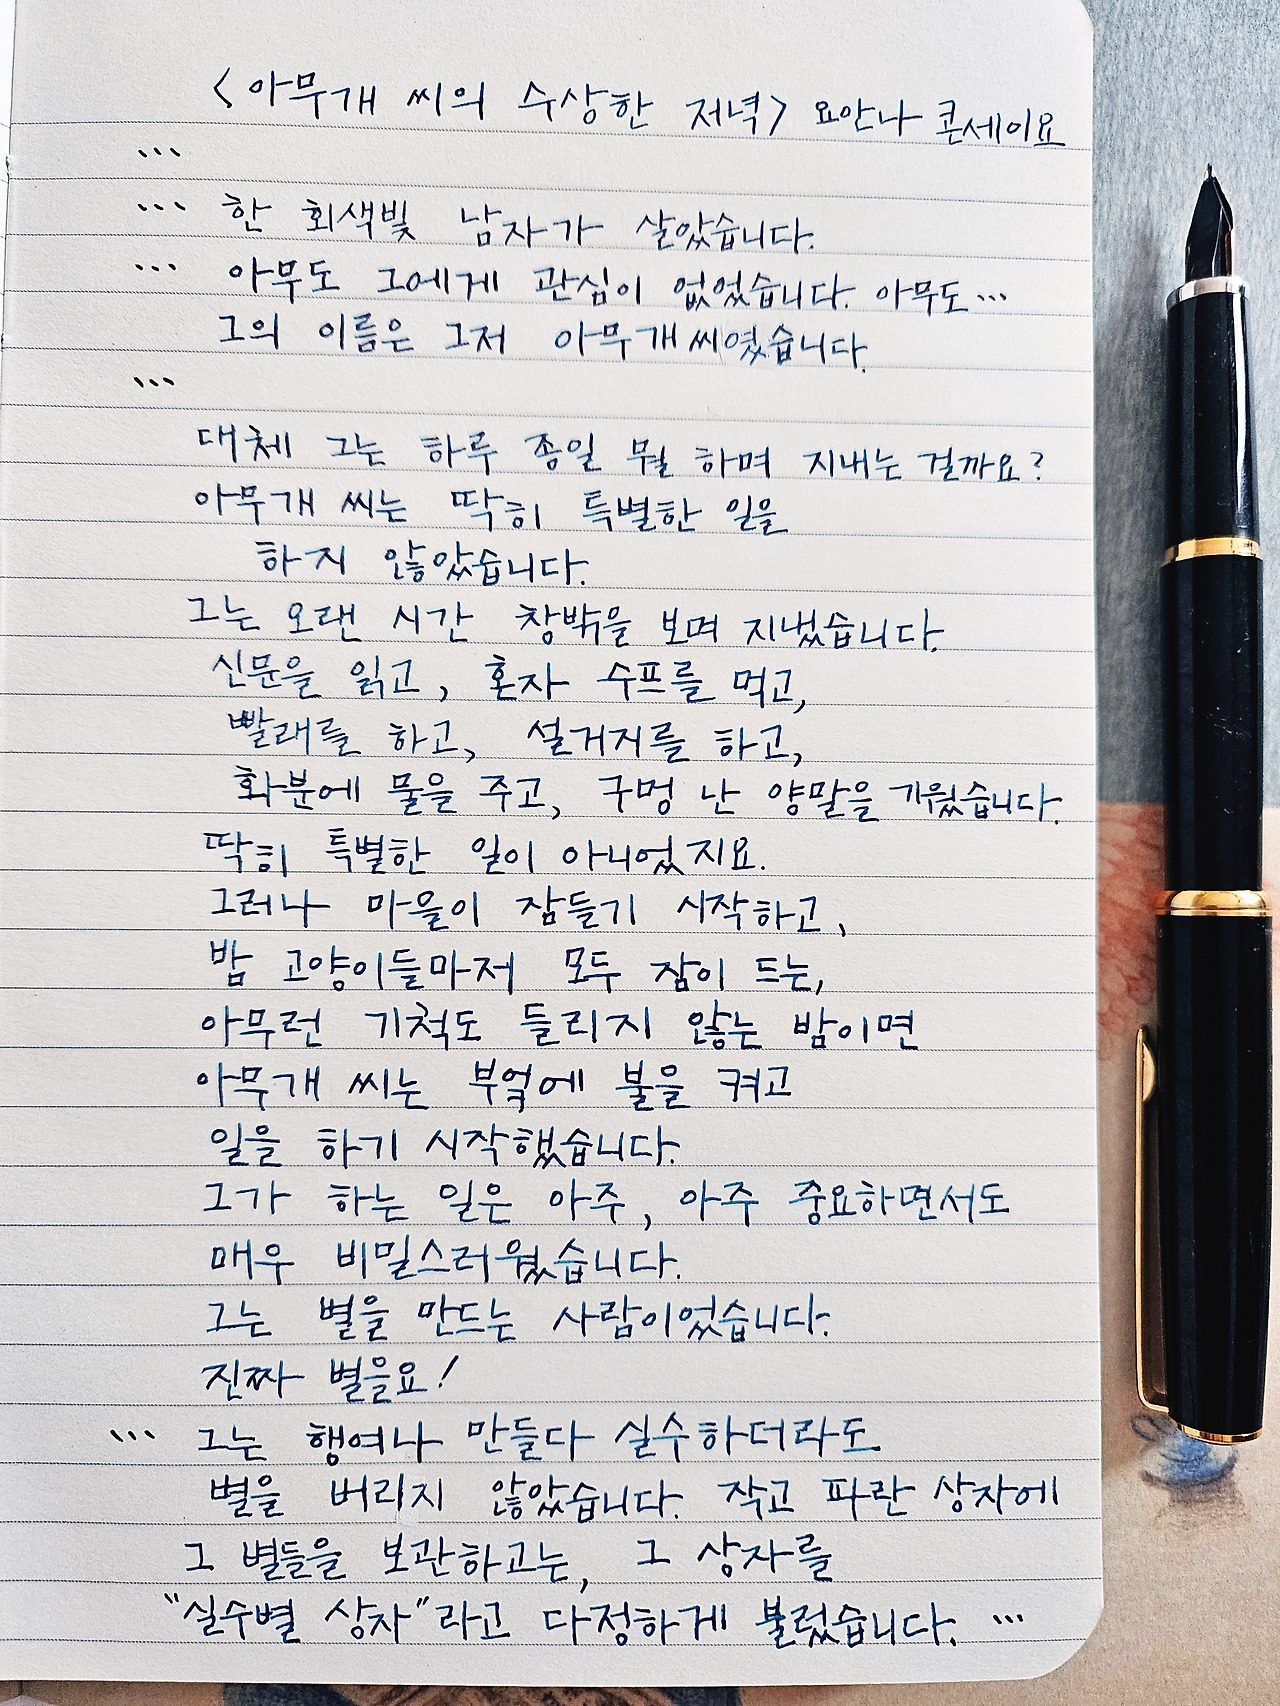 <아무개 씨의 수상한 저녁> 요안나 콘세이요
...
... 한 회색빛 남자가 살았습니다.
... 아무도 그에게 관심이 없었습니다. 아무도...
그의 이름은 그저 아무개 씨였습니다.
...
대체 그는 하루 종일 뭘 하며 지내는 걸까요?
아무개 씨는 딱히 특별한 일을
하지 않았습니다.
그는 오랜 시간 창밖을 보며 지냈습니다.
신문을 읽고, 혼자 수프를 먹고,
빨래를 하고, 설거지를 하고,
화분에 물을 주고, 구멍 난 양말을 기웠습니다.
딱히 특별한 일이 아니었지요.
그러나 마을이 잠들기 시작하고,
밤 고양이들마저 모두 잠이 드는,
아무런 기척도 들리지 않는 밤이면
아무개 씨는 부엌에 불을 켜고
일을 하기 시작했습니다.
그가 하는 일은 아주, 아주 중요하면서도
매우 비밀스러웠습니다.
그는 별을 만드는 사람이었습니다.
진짜 별을요!
... 그는 행여나 만들다 실수하더라도
별을 버리지 않았습니다. 작고 파란 상자에
그 별들을 보관하고는, 그 상자를
"실수별 상자"라고 다정하게 불렀습니다. ...